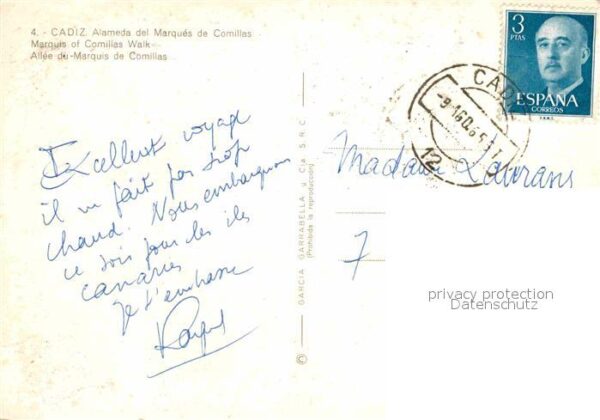 4. - CADIZ. Alameda del Marqués de Comillas
Marquis of Comillas Walk
Allée du Marquis de Comillas
3
PTAS
ESPAÑA
CORREOS
CADIZ
12
Excellent voyage
il ne fait pas trop
chaud. Nous embarquons
ce soir pour les îles
canaries
Je t'embrasse
Madame
7
© GARCIA GARRABELLA y Cía S.R.C.
(Prohibida la reproducción)
privacy protection
Datenschutz